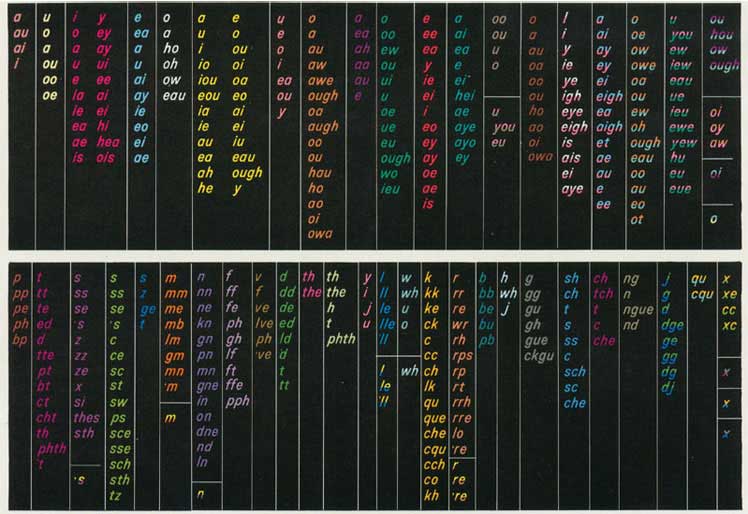 a
au
ai
i
u
o
a
ou
oo
oe
i
o
a
u
e
ia
ie
ea
ae
is
y
ey
ay
ui
ee
ai
ei
hi
hea
ois
e
ea
a
u
ai
ay
ie
eo
ei
ae
o
a
ho
oh
ow
eau
a
u
i
io
iou
eou
ia
ie
au
ea
ah
he
e
o
ou
oi
oa
eo
ai
ei
iu
eau
ough
y
u
e
o
i
ea
ou
y
o
a
au
aw
awe
ough
oa
augh
oo
ou
hau
ho
ao
oi
owa
a
ea
ah
aa
au
e
o
oo
ew
ou
ui
u
oe
ue
eu
ough
wo
ieu
e
ee
ea
y
ie
ei
i
eo
ey
ay
oe
ae
is
a
ai
ea
e
ei
hei
ae
aye
ayo
ey
oo
ou
u
o
u
you
eu
o
a
au
oa
oo
ou
ho
ao
oi
owa
I
i
y
ie
ye
igh
eye
eigh
is
ais
ei
aye
a
ai
ay
ey
ei
eigh
ea
aigh
et
ae
au
e
ee
o
oe
ow
owe
oa
ou
ew
oh
ough
eau
oo
au
eo
ot
u
you
ew
iew
eau
ue
ieu
ewe
yew
hu
eu
eue
ou
hou
ow
ough
oi
oy
aw
oi
o
p
pp
pe
ph
bp
t
tt
te
ed
d
tte
pt
bt
ct
cht
th
phth
't
s
ss
se
's
z
zz
ze
x
si
thes
sth
's
s
ss
se
's
c
ce
sc
st
sw
ps
sce
sse
sch
sth
tz
s
z
ge
t
m
mm
me
mb
lm
gm
mn
'm
m
n
nn
ne
kn
gn
pn
mn
gne
in
on
dne
nd
ln
n
f
ff
fe
ph
gh
lf
ft
ffe
pph
v
f
ve
lve
ph
've
d
dd
de
ed
ld
'd
t
tt
th
the
th
the
h
t
phth
y
i
j
u
l
ll
le
lle
'll
l
le
'll
w
wh
u
o
wh
k
kk
ke
ck
c
cc
ch
lk
qu
que
che
cqu
cch
co
kh
r
rr
re
wr
rh
rps
rp
rt
rrh
rre
lo
're
r
re
're
b
bb
be
bu
pb
h
wh
j
g
gg
gu
gh
gue
ckgu
sh
ch
t
s
ss
c
sch
sc
che
ch
tch
t
c
che
ng
n
ngue
nd
j
g
d
dge
ge
gg
dg
dj
qu
cqu
x
xe
cc
xc
x
x
x